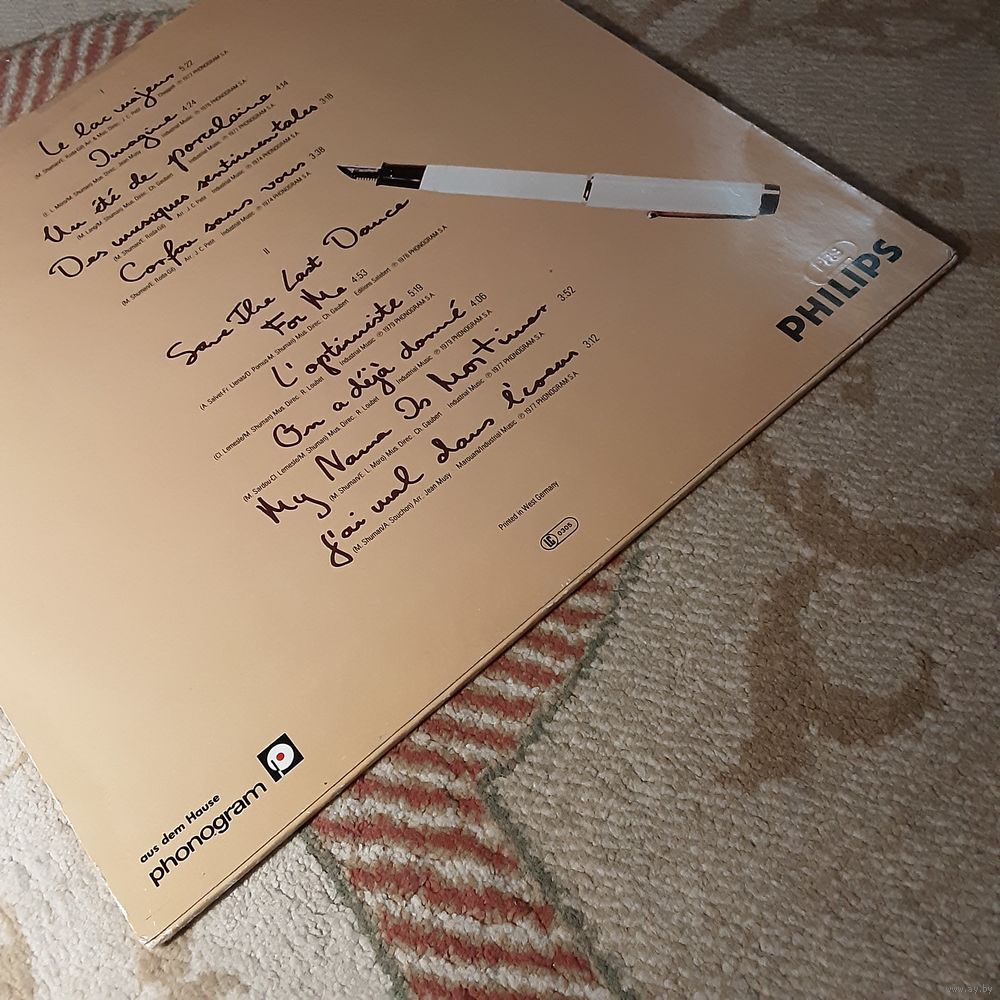 I
Le lac majeur 5:22
(M. Shuman/E. Roda Gil) Arr. & Mus. Direc.: J. C. Petit Chappell ℗ 1977 PHONOGRAM S.A.
Imagine 4:24
Mus. Direc.: Jean Musy Industrial Music ℗ 1976 PHONOGRAM S.A.
Un été de porcelaine 4:14
(M. Lang/M. Shuman) Mus. Direc.: Ch. Gaubert Industrial Music ℗ 1977 PHONOGRAM S.A.
Des musiques sentimentales 3:18
(M. Shuman/E. Roda Gil) Arr.: J. C. Petit Industrial Music ℗ 1974 PHONOGRAM S.A.
Corfou sans vous 3:38
(M. Shuman/E. Roda Gil) Arr.: J. C. Petit Industrial Music ℗ 1974 PHONOGRAM S.A.
II
Save The Last Dance
For Me 4:53
Pomus-M. Shuman) Mus. Direc.: Ch. Gaubert Editions Salabert ℗ 1978 PHONOGRAM S.A.
L'optimiste 5:19
(Cl. Lemesle/M. Shuman) Mus. Direc.: R. Loubet Industrial Music ℗ 1979 PHONOGRAM S.A.
On a déjà donné 4:06
(M. Sardou-Cl. Lemesle/M. Shuman) Mus. Direc.: R. Loubet Industrial Music ℗ 1979 PHONOGRAM S.A.
My Name Is Mortimer 3:52
(M. Shuman/E. L. Moro) Mus. Direc.: Ch. Gaubert Industrial Music ℗ 1977 PHONOGRAM S.A.
J'ai mal dans l'coeur 3:12
(M. Shuman/A. Souchon) Arr.: Jean Musy Marouani/Industrial Music ℗ 1977 PHONOGRAM S.A.
Printed in West Germany
LC 0305
PHILIPS
aus dem Hause
phonogram
www.ay.by